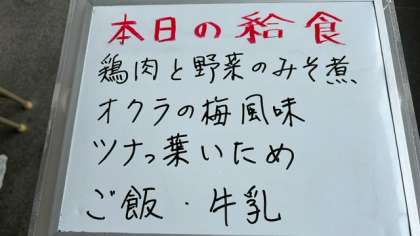 本日の給食
鶏肉と野菜のみそ煮
オクラの梅風味
ツナっ葉いため
ご飯・牛乳